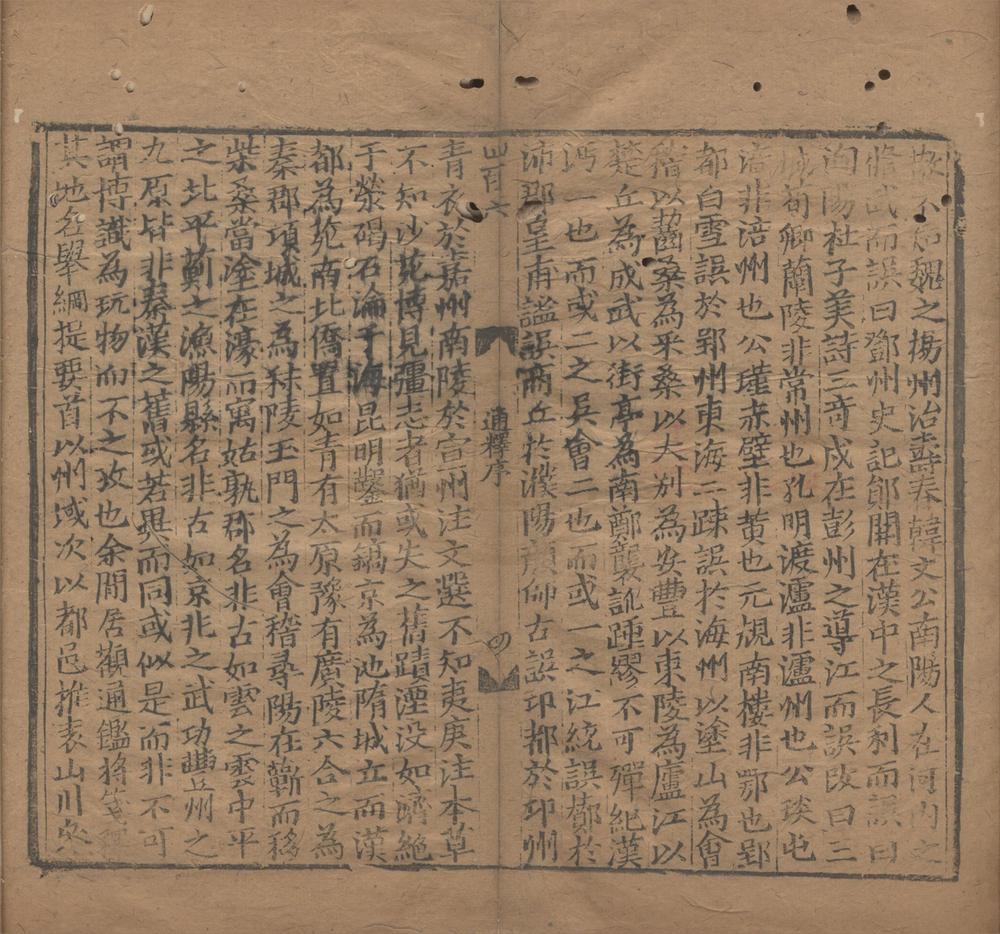 故不知魏之揚州治壽春韓文公南陽人在河內之
脩武而誤曰鄧州史記郎關在漢中之長利而誤曰
洵陽杜子美詩三奇戍在彭州之導江而誤改曰三
城荀卿蘭陵非常州也孔明渡瀘非瀘州也公琰屯
涪非涪州也公瑾赤壁非黃也元規南樓非鄂也郢
都白雪誤於郢州東海二疎誤於海州以塗山為會
稽以齧桑為采桑以大別為安豐以東陵為廬江以
楚丘為成武以街亭為南鄭襲訛踵繆不可殫紀漢
沔一也而或二之吳會二也而或一之江統誤鄚於
沛郡皇甫謐誤商丘於濮陽顏師古誤卭都於卭州
山百六
通釋序
四
青衣於嘉州南陵於宣州注文選不知夷庚注本草
不知沙苑博見彊志者猶或失之舊蹟湮没如濟絶
于滎碣石淪于海昆明鑿而鎬京為池隋城立而漢
都為苑南北僑置如青有太原豫有廣陵六合之為
秦郡項城之為秣陵玉門之為會稽尋陽在蘄而移
柴桑當塗在濠而寓姑孰郡名非古如雲之雲中平
之北平薊之漁陽縣名非古如京兆之武功豐州之
九原皆非秦漢之舊或若異而同或似是而非不可
謂博識為玩物而不之攷也余閒居觀通鑑將箋釋
其地名舉綱提要首以州域次以都邑推表山川